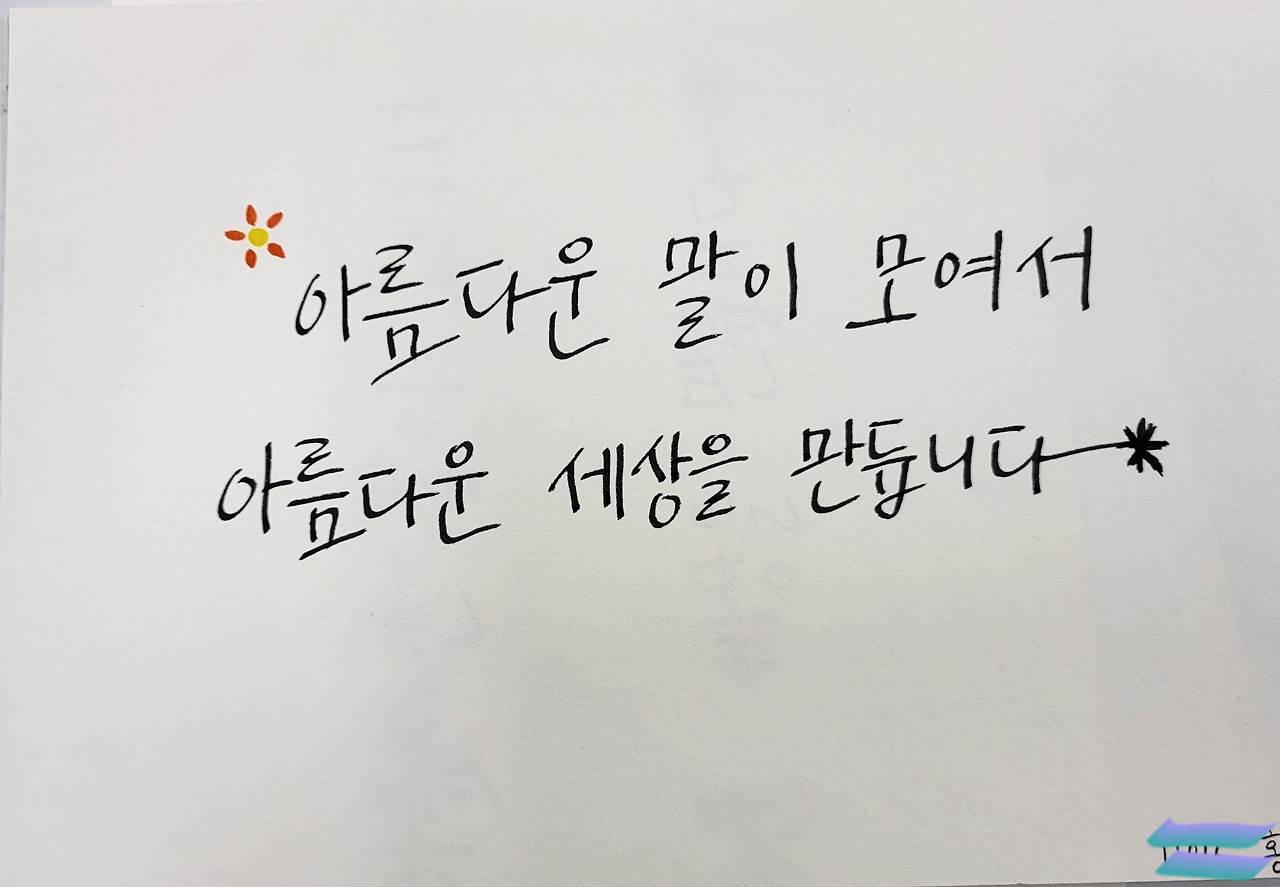 아름다운 말이 모여서
아름다운 세상을 만듭니다